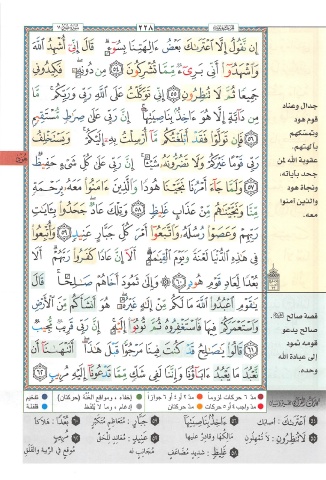 ٢٢٨
إِن نَّقُولُ إِلَّا ٱعْتَرَىٰكَ بَعْضُ ءَالِهَتِنَا بِسُوٓءٍ ۗ قَالَ إِنِّىٓ أُشْهِدُ ٱللَّهَ
وَٱشْهَدُوٓا۟ أَنِّى بَرِىٓءٌ مِّمَّا تُشْرِكُونَ ﴿٥٤﴾ مِن دُونِهِۦ ۖ فَكِيدُونِى
جَمِيعًا ثُمَّ لَا تُنظِرُونِ ﴿٥٥﴾ إِنِّى تَوَكَّلْتُ عَلَى ٱللَّهِ رَبِّى وَرَبِّكُم ۚ مَّا
مِن دَآبَّةٍ إِلَّا هُوَ ءَاخِذٌۢ بِنَاصِيَتِهَآ ۚ إِنَّ رَبِّى عَلَىٰ صِرَٰطٍ مُّسْتَقِيمٍ
﴿٥٦﴾ فَإِن تَوَلَّوْا۟ فَقَدْ أَبْلَغْتُكُم مَّآ أُرْسِلْتُ بِهِۦٓ إِلَيْكُمْ ۚ وَيَسْتَخْلِفُ
رَبِّى قَوْمًا غَيْرَكُمْ وَلَا تَضُرُّونَهُۥ شَيْـًٔا ۚ إِنَّ رَبِّى عَلَىٰ كُلِّ شَىْءٍ حَفِيظٌ
﴿٥٧﴾ وَلَمَّا جَآءَ أَمْرُنَا نَجَّيْنَا هُودًا وَٱلَّذِينَ ءَامَنُوا۟ مَعَهُۥ بِرَحْمَةٍ
مِّنَّا وَنَجَّيْنَٰهُم مِّنْ عَذَابٍ غَلِيظٍ ﴿٥٨﴾ وَتِلْكَ عَادٌ ۖ جَحَدُوا۟ بِـَٔايَٰتِ
رَبِّهِمْ وَعَصَوْا۟ رُسُلَهُۥ وَٱتَّبَعُوٓا۟ أَمْرَ كُلِّ جَبَّارٍ عَنِيدٍ ﴿٥٩﴾ وَأُتْبِعُوا۟
فِى هَٰذِهِ ٱلدُّنْيَا لَعْنَةً وَيَوْمَ ٱلْقِيَٰمَةِ ۗ أَلَآ إِنَّ عَادًا كَفَرُوا۟ رَبَّهُمْ ۗ أَلَا
بُعْدًا لِّعَادٍ قَوْمِ هُودٍ ﴿٦٠﴾ ۞ وَإِلَىٰ ثَمُودَ أَخَاهُمْ صَٰلِحًا ۚ قَالَ
يَٰقَوْمِ ٱعْبُدُوا۟ ٱللَّهَ مَا لَكُم مِّنْ إِلَٰهٍ غَيْرُهُۥ ۖ هُوَ أَنشَأَكُم مِّنَ ٱلْأَرْضِ
وَٱسْتَعْمَرَكُمْ فِيهَا فَٱسْتَغْفِرُوهُ ثُمَّ تُوبُوٓا۟ إِلَيْهِ ۚ إِنَّ رَبِّى قَرِيبٌ مُّجِيبٌ
﴿٦١﴾ قَالُوا۟ يَٰصَٰلِحُ قَدْ كُنتَ فِينَا مَرْجُوًّا قَبْلَ هَٰذَآ ۖ أَتَنْهَىٰنَآ أَن
نَّعْبُدَ مَا يَعْبُدُ ءَابَآؤُنَا وَإِنَّنَا لَفِى شَكٍّ مِّمَّا تَدْعُونَآ إِلَيْهِ مُرِيبٍ ﴿٦٢﴾
جدال وعناد
قوم هود
وتمسكهم
بآلهتهم،
عقوبة الله لمن
جحد بآياته،
ونجاة هود
والذين آمنوا
معه.
قصة صالح
صالح يدعو
قومه ثمود
إلى عبادة الله
وحده.
مد ٦ حركات لزوماً مد ٢ أو ٤ أو ٦ جوازاً إخفاء، ومواقع الغنة (حركتان) تفخيم
مد واجب ٤ أو ٥ حركات مد حركتان إدغام، وما لا يلفظ قلقلة